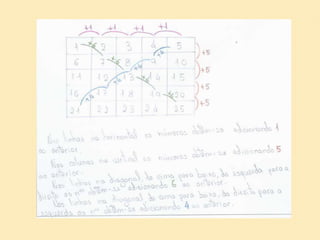 +1 +1 +1 +1
1 2 3 4 5
6 7 8 9 10
11 12 13 14 15
16 17 18 19 20
21 22 23 24 25
+5
+5
+5
+5
Nas linhas na horizontal os números obtêm-se adicionando 1
ao anterior.
Nas colunas na vertical os números obtêm-se adicionando 5
ao anterior.
Nas linhas na diagonal, de cima para baixo, da esquerda para a
direita os nºs obtêm-se adicionando 6 ao anterior.
Nas linhas na diagonal, de cima para baixo, da direita para a
esquerda os nºs obtêm-se adicionando 4 ao anterior.